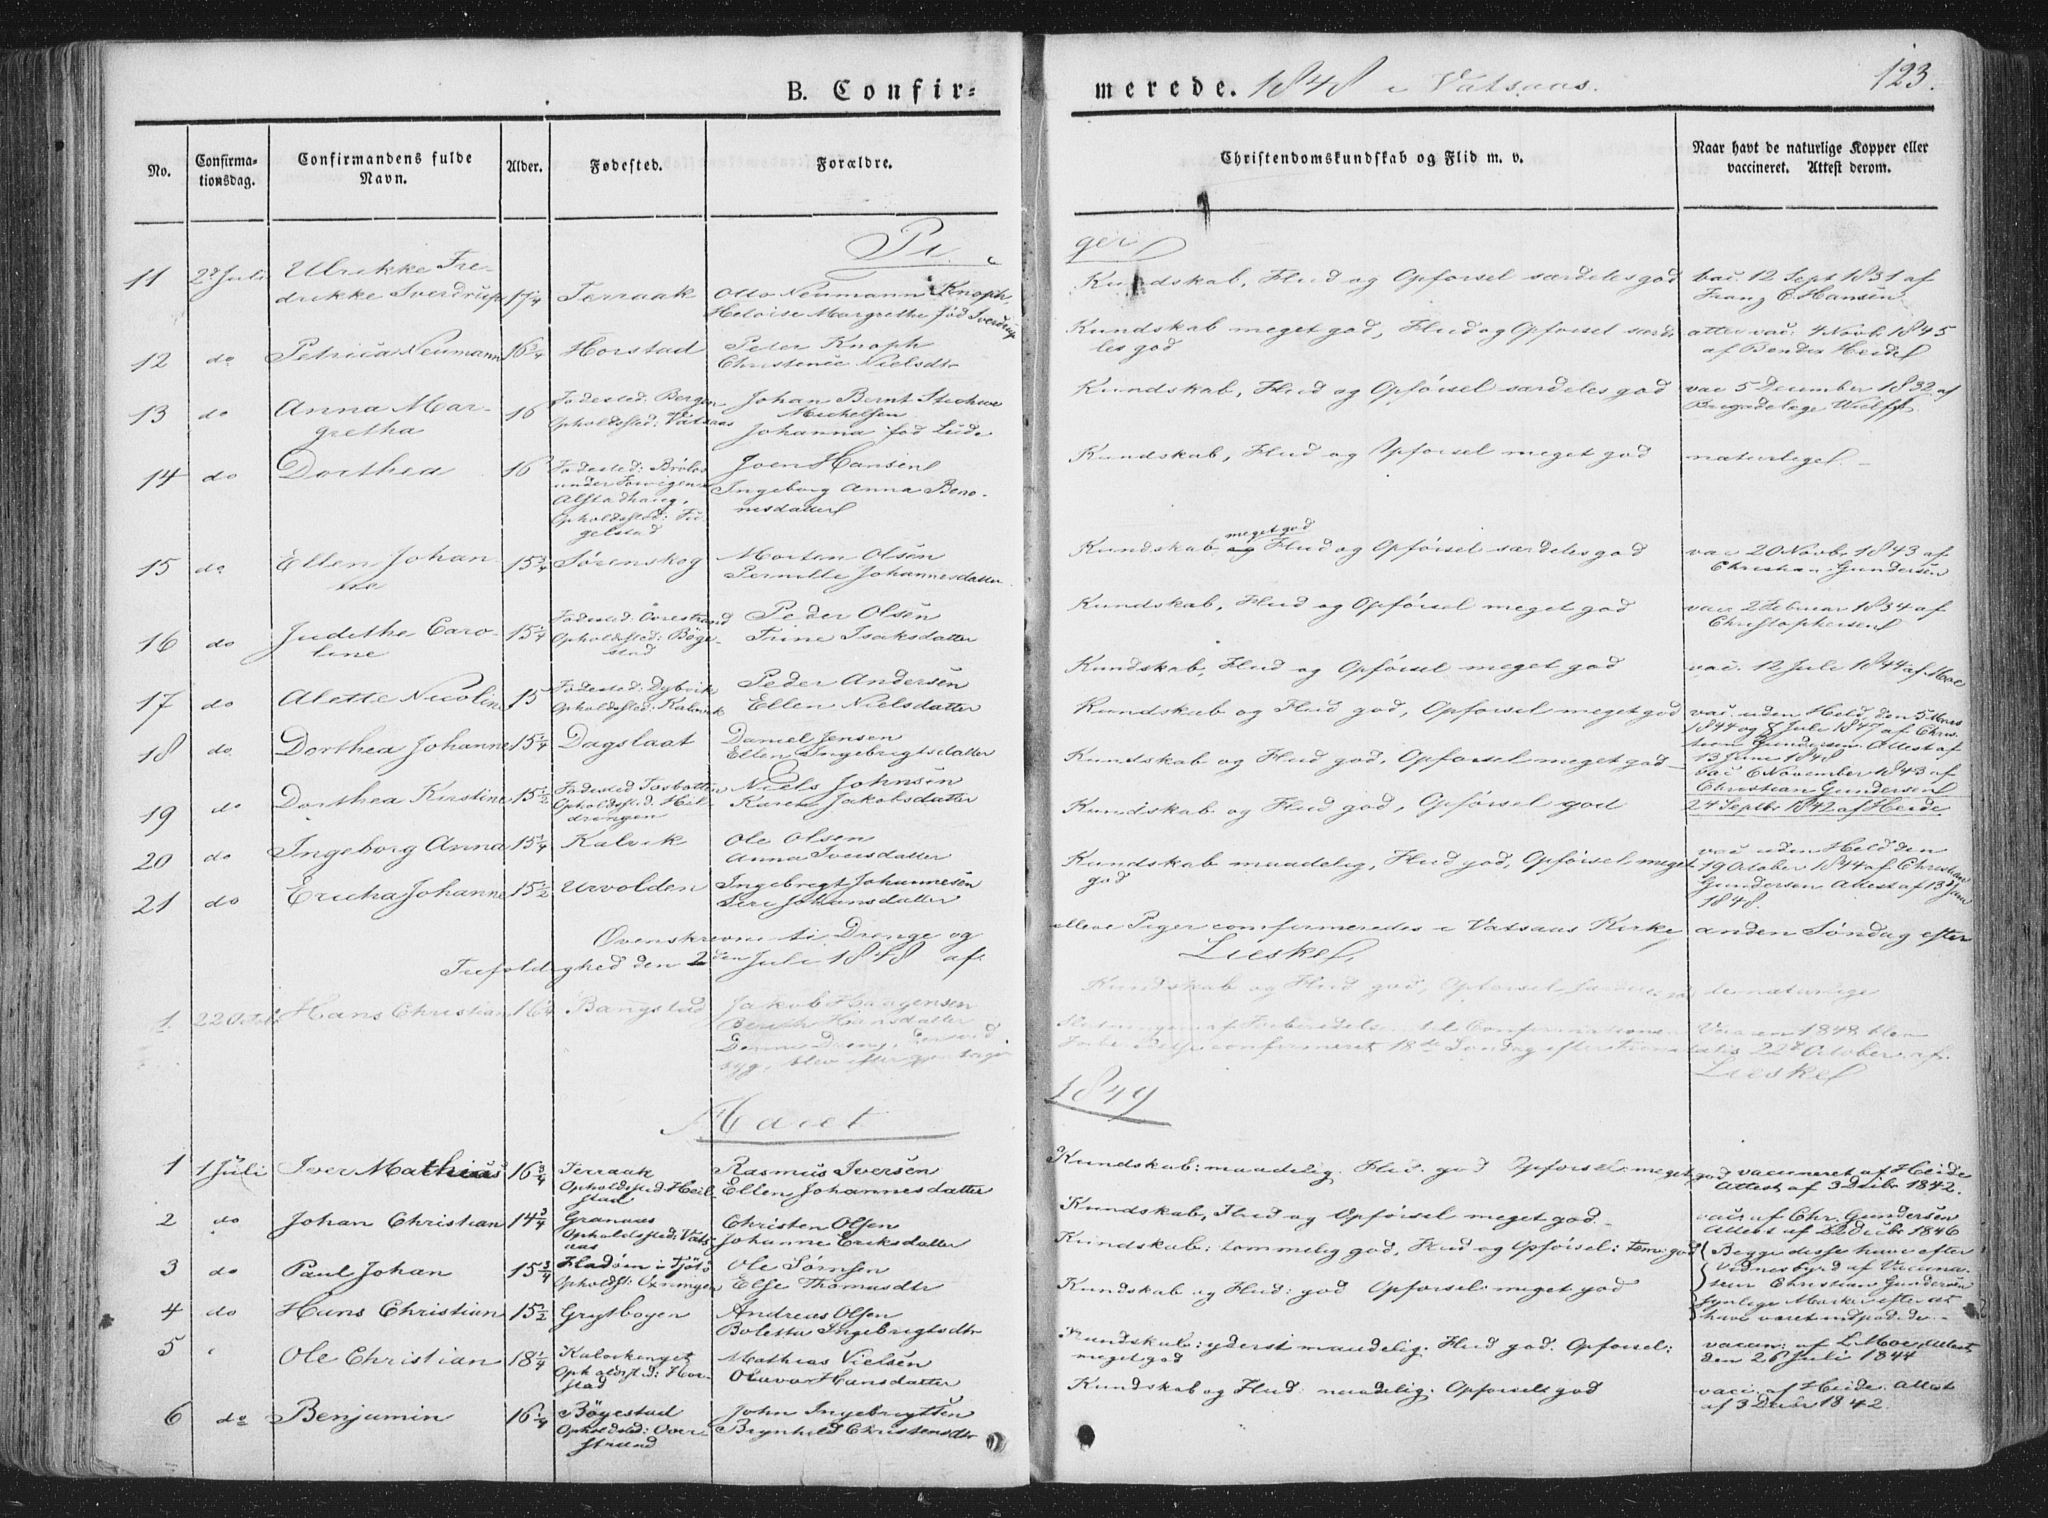 B. Confir=
merede. 1848 i Vatsaas.
123.
No.
Confirma-
tionsdag.
Confirmandens fulde
Navn.
Alder.
Fødested.
Forældre.
Christendomskundskab og Flid m. v.
Naar havt de naturlige Kopper eller
vaccineret. Attest derom.
Pi
ger
11 2d Juli Ulrikke Fre-
drikke Sverdrup 17¼ Terraak Otto Neumann Knoph
Heloise Margrethe fød Sverdrup
Kundskab, Flid og Opførsel særdeles god
vac. 12 Sept 1831 af
Franz C. Hansen
12 do Petrica Neumann 16¾ Horstad Peter Knoph
Christence Nielsdtr
Kundskab meget god, Flid og Opførsel særde
les god
atter vac. 4 Novbr 1845
af Heide
13 do Anna Mar-
gretha 16 Fødested: Bergen
Opholdssted: Vatsaas
Johan Bernt
Michelsen
Johanna fød
Kundskab, Flid og Opførsel særdeles god
vac 5 December 1832 af
Brigadelæge Wulff
14 do Dorthea 16 Fødested:
under
Alstadhaug,
Opholdssted: Fu-
gelstad
Joen Hansen
Ingeborg Anna Bero-
nesdatter
Kundskab, Flid og Opførsel meget god
naturlige
15 do Ellen Johan-
na 15¾ Sørenskog Morten Olsen
Pernille Johannesdatter
meget god
Kundskab og Flid og Opførsel særdeles god
vac 20 Novbr 1843 af
Christian Gundersen
16 do Judithe Caro-
line 15¼ Fødested: Øverstrand
Opholdssted: Bøge-
stad
Peder Olsen
Trine Isaksdatter
Kundskab, Flid og Opførsel meget god
vac 2 Februar 1834 af
Christophersen
17 do Alette Nicoline 15 Fødested: Dybvik
Opholdssted: Kalvik
Peder Andersen
Ellen Nielsdatter
Kundskab, Flid og Opførsel meget god
vac. 12 Juli 1844 af Moe
18 do Dorthea Johanne 15¼ Dagslaat Daniel Jensen
Ellen Ingebrigtsdatter
Kundskab og Flid god, Opførsel meget god
vac. uden Held den 5
1844 og 8 Juli 1847 af Chris-
tian Gundersen. Attest af
13 Juni 1848
19 do Dorthea Kirstine 15½ Fødested Tosbotten
Opholdssted: Heil-
Niels Johnsen
Karen Jakobsdatter
Kundskab og Flid god, Opførsel meget god
vac 6 November 1843 af
Christian Gundersen
20 do Ingeborg Anna 15¼ Kalvik Ole Olsen
Anna Iversdatter
Kundskab og Flid god, Opførsel god
24 Septbr 1842 af Heide
21 do Ericha Johanne 15½ Urvolden Ingebrigt Johannesen
Siri Johansdatter
Kundskab maadelig, Flid god, Opførsel meget
god
vac uden Held den
19 October 1844 af Christian
Gundersen Attest af 13 Juni
1848.
Ovenskrevne ti Drenge og
elleve Piger comfirmeredes i Vatsaas Kirke anden Søndag efter
Trefoldighed den 2den Juli 1848 af
Lieskel,
1. 22 Octob Hans Christian 16¼ Bangstad Jakob Haagensen
Berith Hansdatter
Kundskab og Flid god, Opførsel særdeles god de naturlige
Denne Dreng,
Slutningen af Forberedelsen til Confirmationen Vaaren 1848 blev
syg, blev efter
confirmeret 18de Søndag efter Trinitatis 22d October af
Lieskel
Aaret
1849
1 1 Juli Iver Mathias 16¾ Terraak
Opholdssted: Heil-
stad
Rasmus Iversen
Ellen Johannesdatter
Kundskab: maadelig. Flid: god Opførsel: meget god
vaccineret af Heide
Attest af 3 Decbr. 1842.
2 do Johan Christian 14¾ Granaas
Opholdssted: Vats-
aas
Christen Olsen
Johanne Eriksdatter
Kundskab, Flid og Opførsel meget god.
vacc. af Chr. Gundersen
Attest af 22 Decbr 1846
3 do Paul Johan 15¾ Fladøen i Tjøtø
Opholdsst: Oxningen
Ole Sørnsen
Else Thomasdtr
Kundskab: temmelig god, Flid og Opførsel: tem: god
Begge disse have efter
Vidnesbyrd af Vaccina-
teur Christian Gundersen
synlige Mærker efter at
have været indpodede.
4 do Hans Christian 15½ Grytbogen Andreas Olsen
Boletta Ingebrigtsdtr
Kundskab og Flid: god Opførsel: meget god
5 Ole Christian 18¼ Kalvikenget
Opholdssted: Hor-
stad
Mathias Nielsen
Olava Hansdatter
Kundskab: yderst maadelig. Flid god. Opførsel:
meget god
vaccin: af L. Moe, Attest
den 26 Juli 1844
6 do Benjamin 16¼ Bøgestad
Opholdssted: Over-
strand
John Ingebrigtsen
Brynhild Christensdtr
Kundskab og Flid: maadelig. Opførsel: god
vacc. af Heide. Attest
af 3 Decbr 1842.